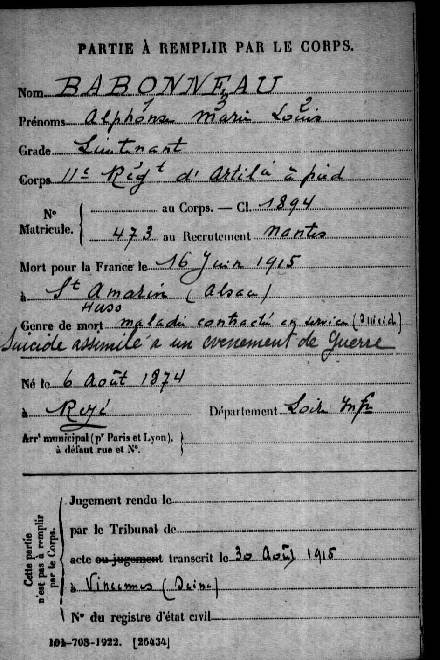 PARTIE À REMPLIR PAR LE CORPS.
Nom BABONNEAU
1 3 2
Prénoms Alphonse Marie Louis
Grade Lieutenant
Corps 11e Régt d'Artie à pied
No Matricule. { au Corps. — Cl. 1894
473 au Recrutement Nantes
Mort pour la France le 16 Juin 1915
à St Amarin (Alsace)
Genre de mort maladie contractée en service (suicide)
Suicide assimilé à un evenement de Guerre
Né le 6 Août 1874
à Rezé Département Loire Infre
Arrt municipal (pr Paris et Lyon),
à défaut rue et No. }
Cette partie n'est pas à remplir par le Corps.
Jugement rendu le
par le Tribunal de
acte ou jugement transcrit le 30 Août 1915
à Vincennes (Seine)
No du registre d'état civil
101-708-1922. [26434]